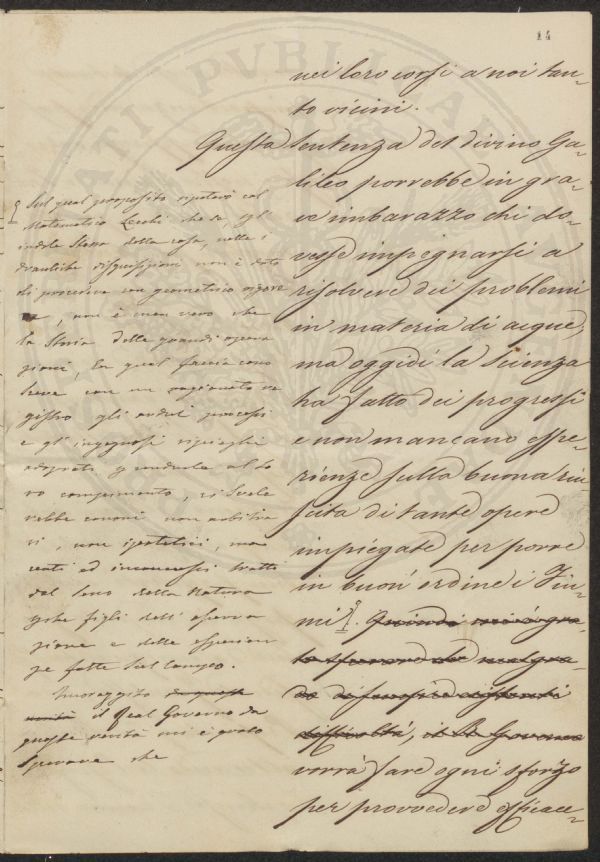 14
nei loro corsi a noi tan-
to vicini.
Questa sentenza del divino Ga-
lileo porrebbe in gra-
ve imbarazzo chi do-
vesse impegnarsi a
risolvere dei problemi
in materia di acque,
ma oggidì la scienza
ha fatto dei progressi
e non mancano espe-
rienze sulla buona riu-
scita di tante opere
impiegate per porre
in buon'ordine i Fiu-
mi. Quindi mi è gra-
to sperare che malgra-
do
difficoltà, il R. Governo
vorrà fare ogni sforzo
per provvedere efficace-
Sul qual proposito ripeterò col
Matematico Lecchi che se, per l'
indole stessa della cosa, nelle i
drauliche disquisizioni non è dato
di procedere con geometrico rigore
, non è men vero che
la Storia delle grandi opera
zioni, la qual faccia cono
scere con un ragionato re
gistro gli andati processi
e gl'ingegnosi ripieghi
adoprati p condurle al lo
ro compimento, ci svele
rebbe canoni non arbitra
ri, non ipotetici, ma
certi ed inconcussi tratti
dal seno della Natura
perche figli dell'osserva
zione e delle esperien
ze fatte sul campo.
Incoraggito da queste
verità il Real Governo da
queste verità mi è grato
sperare che
PVBLICAE